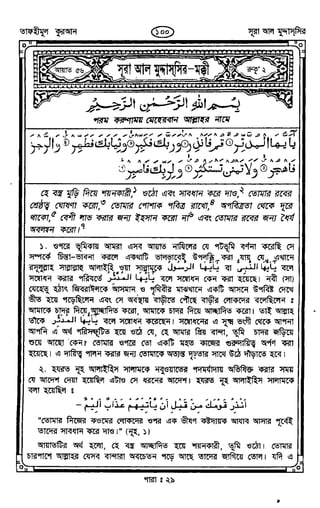 তাফহীমুল কুরআন ১০০ সূরা আল মুদ্দাস্‌সির
আয়াত ৫৬ সূরা আল মুদ্দাস্‌সির-মক্কী রুকূ' ২
بِسْمِ اللهِ الرَّحْمٰنِ الرَّحِيْمِ
পরম করুণাময় মেহেরবান আল্লাহর নামে
يٰٓاَيُّهَا الْمُدَّثِّرُ ۝ قُمْ فَاَنْذِرْ ۝ وَرَبَّكَ فَكَبِّرْ ۝ وَثِيَابَكَ فَطَهِّرْ ۝ وَالرُّجْزَ
فَاهْجُرْ ۝ وَلَا تَمْنُنْ تَسْتَكْثِرُ ۝ وَلِرَبِّكَ فَاصْبِرْ ۝
হে বস্ত্র মুড়ি দিয়ে শয়নকারী,১ ওঠো এবং সাবধান করে দাও,২ তোমার রবের
শ্রেষ্ঠত্ব ঘোষণা করো,৩ তোমার পোশাক পবিত্র রাখো,৪ অপবিত্রতা থেকে দূরে
থাকো,৫ বেশী লাভ করার জন্য ইহসান করো না৬ এবং তোমার রবের জন্য ধৈর্য
অবলম্বন করো।৭
১. ওপরে ভূমিকায় আমরা এসব আয়াত নাযিলের যে পটভূমি বর্ণনা করেছি সে
সম্পর্কে চিন্তা-ভাবনা করলে একথাটি ভালভাবেই উপলব্ধি করা যায় যে, এখানে
রসূলুল্লাহ সাল্লাল্লাহু আলাইহি ওয়া সাল্লামকে يٰاَيُّهَا الرَّسُوْلُ বা يٰاَيُّهَا النَّبِىُّ বলে
সম্বোধন করার পরিবর্তে يٰاَيُّهَا الْمُدَّثِّرُ বলে সম্বোধন কেন করা হয়েছে। নবী (সা)
যেহেতু হঠাৎ জিবরাঈলকে আসমান ও পৃথিবীর মাঝখানে একটি আসনে উপবিষ্ট দেখে
ভীত হয়ে পড়েছিলেন এবং সে অবস্থায় বাড়ীতে পৌঁছে বাড়ীর লোকদের বলেছিলেন ঃ
আমাকে চাদর দিয়ে আচ্ছাদিত করো, আমাকে চাদর দিয়ে আচ্ছাদিত করো। তাই আল্লাহ
তাঁকে يٰاَيُّهَا الْمُدَّثِّرُ বলে সম্বোধন করেছেন। সম্বোধনের এ সূক্ষ্ম ভংগী থেকে আপনা
আপনি এ অর্থ পরিস্ফুটিত হয়ে ওঠে যে, হে আমার প্রিয় বান্দা, তুমি চাদর জড়িয়ে
শুয়ে আছো কেন? তোমার ওপরে তো একটি মহত কাজের গুরুদায়িত্ব অর্পণ করা
হয়েছে। এ দায়িত্ব পালন করার জন্য তোমাকে অত্যন্ত দৃঢ়তার সাথে উঠে দাঁড়াতে হবে।
২. হযরত নূহ আলাইহিস সালামকে নবুওয়াতের পদমর্যাদায় অভিষিক্ত করার সময়
যে আদেশ দেয়া হয়েছিল এটাও সে ধরনের আদেশ। হযরত নূহ আলাইহিস সালামকে
বলা হয়েছিল ঃ
اَنْذِرْ قَوْمَكَ مِنْ قَبْلِ اَنْ يَّاْتِيَهُمْ عَذَابٌ اَلِيْمٌ -
"তোমার নিজের কওমের লোকদের ওপর এক ভীষণ কষ্টদায়ক আযাব আসার পূর্বেই
তাদের সাবধান করে দাও।" (নূহ, ১)
আয়াতটির অর্থ হলো, হে বস্ত্র আচ্ছাদিত হয়ে শয়নকারী, তুমি ওঠো। তোমার
চারপাশে আল্লাহর যেসব বান্দারা অবচেতন পড়ে আছে তাদের জাগিয়ে তোল। যদি এ
পারা ঃ ২৯